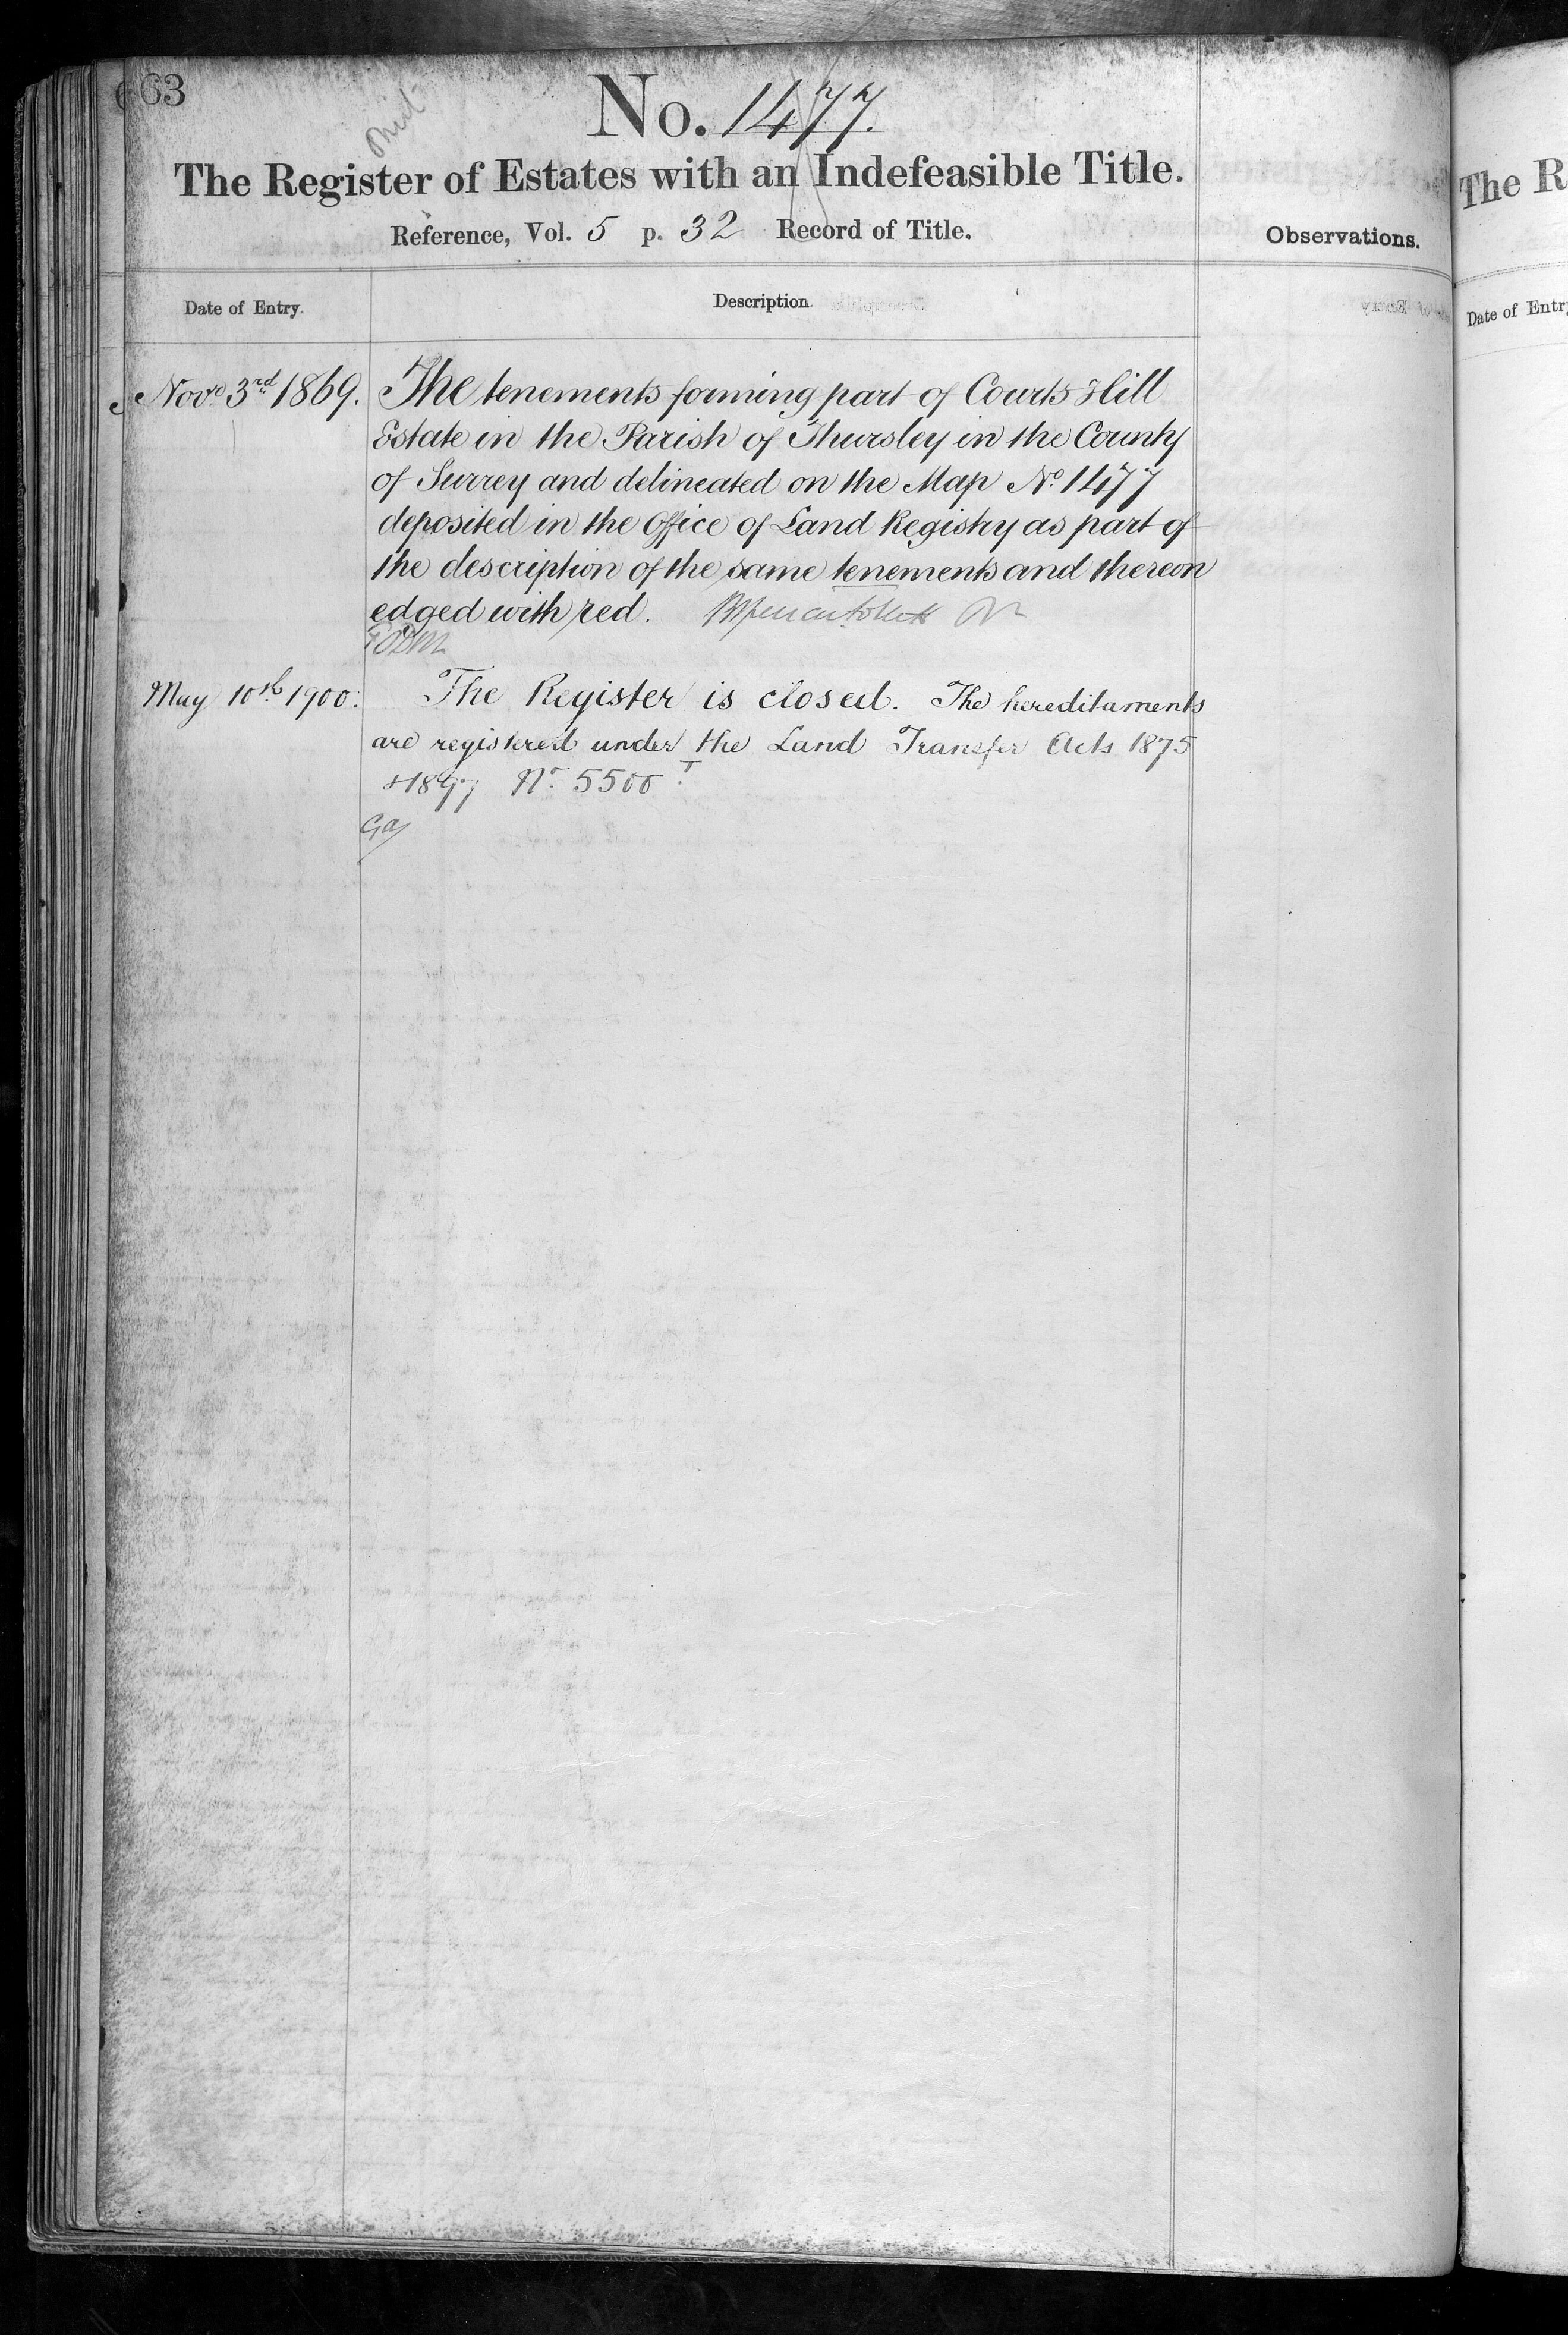 63
No. 1477.
The Register of Estates with an Indefeasible Title.
Reference, Vol. 5 p. 32 Record of Title.
Observations.
Date of Entry.
Description.
Novr. 3rd 1869.
The tenements forming part of Courts Hill
Estate in the Parish of Thursley in the County
of Surrey and delineated on the Map No. 1477
deposited in the Office of Land Registry as part of
the description of the same tenements and thereon
edged with red.
May 10th 1900.
The Register is closed. The hereditaments
are registered under the Land Transfer Acts 1875
& 1897 No. 5500
The R
Date of Entry